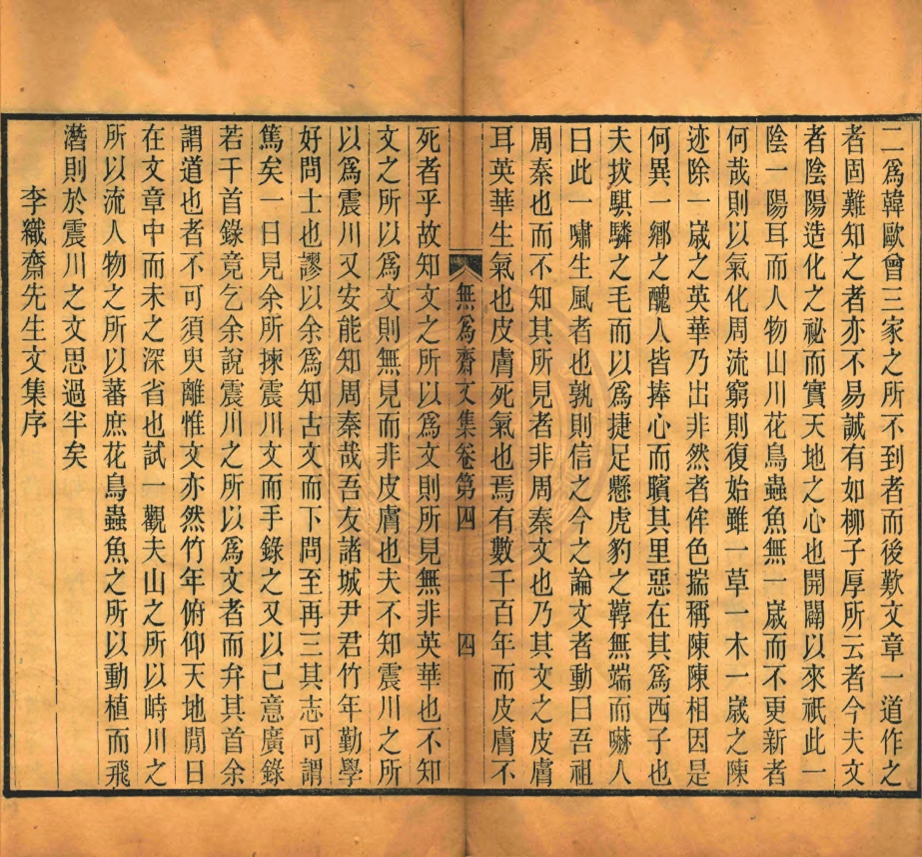 二爲韓歐曾三家之所不到者而後歎文章一道作之
者固難知之者亦不易誠有如柳子厚所云者今夫文
者陰陽造化之祕而實天地之心也開闢以來祇此一
陰一陽耳而人物山川花鳥蟲魚無一嵗而不更新者
何哉則以氣化周流窮則復始雖一草一木一嵗之陳
迹除一嵗之英華乃出非然者侔色揣稱陳陳相因是
何異一鄉之醜人皆捧心而矉其里惡在其爲西子也
夫拔騏驎之毛而以爲捷足懸虎豹之鞟無端而嚇人
曰此一嘯生風者也孰則信之今之論文者動曰吾祖
周秦也而不知其所見者非周秦文也乃其文之皮膚
耳英華生氣也皮膚死氣也焉有數千百年而皮膚不
無爲齋文集卷第四　四
死者乎故知文之所以爲文則所見無非英華也不知
文之所以爲文則無見而非皮膚也夫不知震川之所
以爲震川又安能知周秦哉吾友諸城尹君竹年勤學
好問士也謬以余爲知古文而下問至再三其志可謂
篤矣一日見余所揀震川文而手錄之又以己意廣錄
若干首錄竟乞余說震川之所以爲文者而弁其首余
謂道也者不可須臾離惟文亦然竹年俯仰天地閒日
在文章中而未之深省也試一觀夫山之所以峙川之
所以流人物之所以蕃庶花鳥蟲魚之所以動植而飛
濳則於震川之文思過半矣
李織齋先生文集序